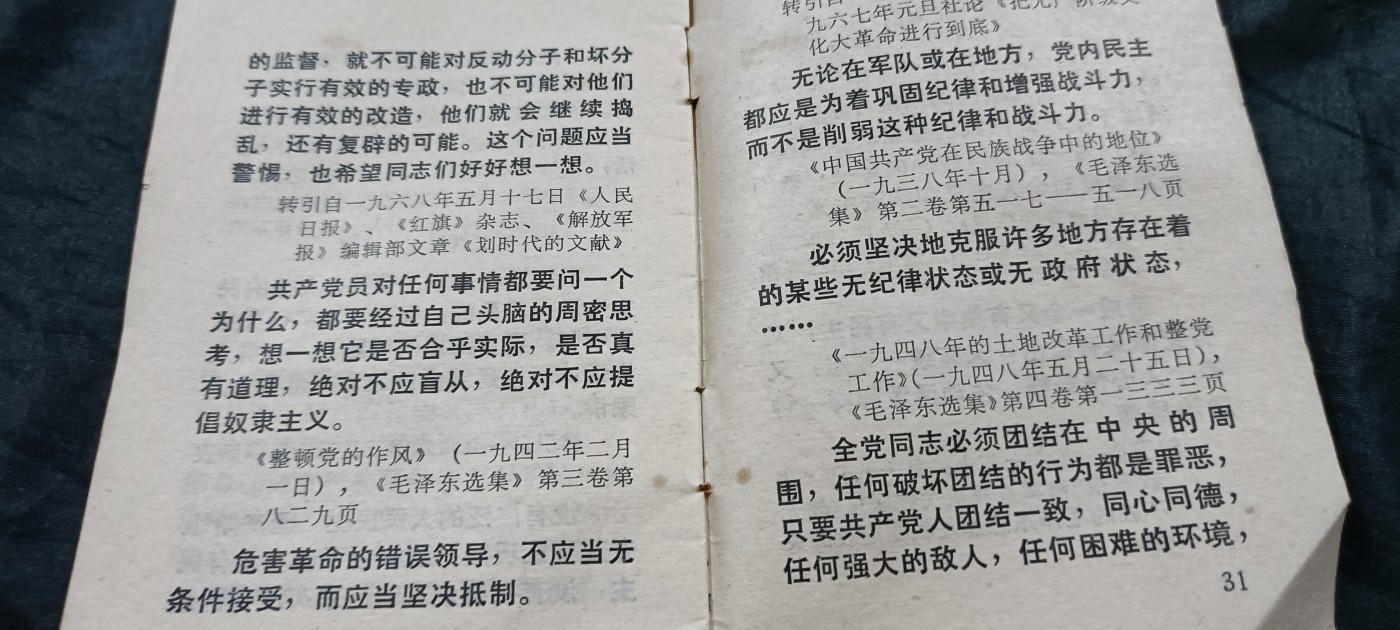 的监督，就不可能对反动分子和坏分
子实行有效的专政，也不可能对他们
进行有效的改造，他们就会继续捣
乱，还有复辟的可能。这个问题应当
警惕，也希望同志们好好想一想。
转引自一九六八年五月十七日《人民
日报》、《红旗》杂志、《解放军
报》编辑部文章《划时代的文献》
共产党员对任何事情都要问一个
为什么，都要经过自己头脑的周密思
考，想一想它是否合乎实际，是否真
有道理，绝对不应盲从，绝对不应提
倡奴隶主义。
《整顿党的作风》（一九四二年二月
一日），《毛泽东选集》第三卷第
八二九页
危害革命的错误领导，不应当无
条件接受，而应当坚决抵制。
转引自
九六七年元旦社论《把无产阶级文
化大革命进行到底》
无论在军队或在地方，党内民主
都应是为着巩固纪律和增强战斗力，
而不是削弱这种纪律和战斗力。
《中国共产党在民族战争中的地位》
（一九三八年十月），《毛泽东选
集》第二卷第五一七——五一八页
必须坚决地克服许多地方存在着
的某些无纪律状态或无政府状态，
……
《一九四八年的土地改革工作和整党
工作》（一九四八年五月二十五日），
《毛泽东选集》第四卷第一三三三页
全党同志必须团结在中央的周
围，任何破坏团结的行为都是罪恶，
只要共产党人团结一致，同心同德，
任何强大的敌人，任何困难的环境，
31